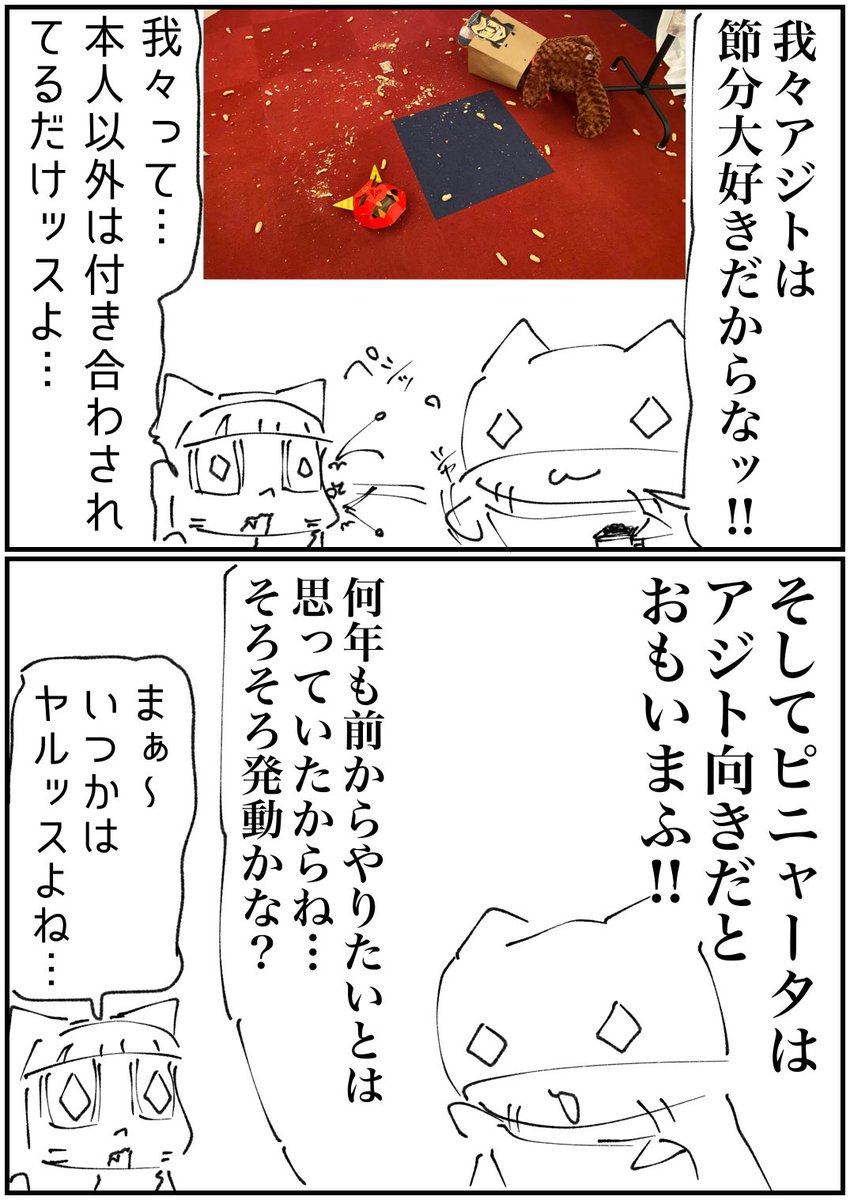 我々アジトは
節分大好きだからなッ!!
我々って…
本人以外は付き合わされ
てるだけッスよ…
ペシッ
そしてピニャータは
アジト向きだと
おもいまふ!!
何年も前からやりたいとは
思っていたからね…
そろそろ発動かな？
まぁ〜
いつかは
ヤルッスよね…